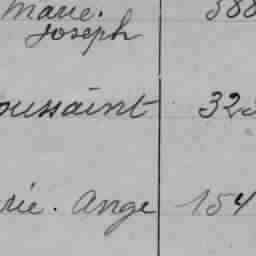 Marie. 588
Joseph
oussaint 323
rie. Ange 154